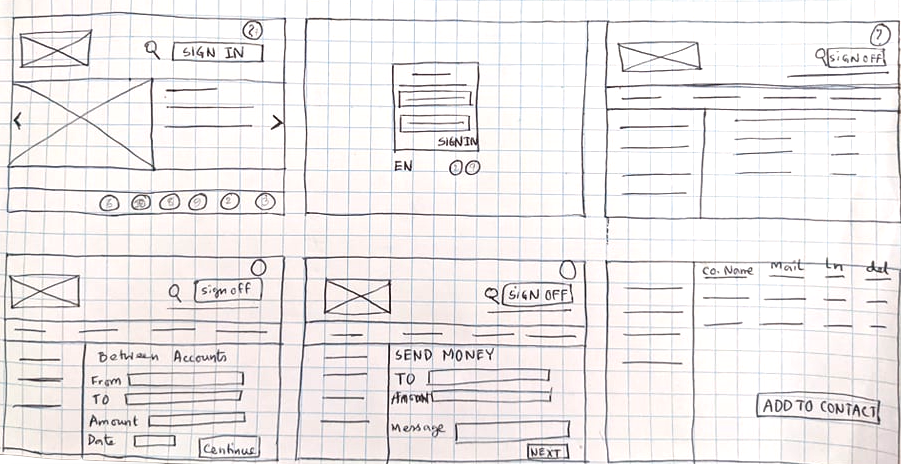 ?
SIGN IN
<
>
SIGN IN
EN
?
SIGN OFF
Sign off
Between Accounts
From
TO
Amount
Date
Continue
SIGN OFF
SEND MONEY
TO
Amount
Message
NEXT
Co. Name Mail Ln del
ADD TO CONTACT